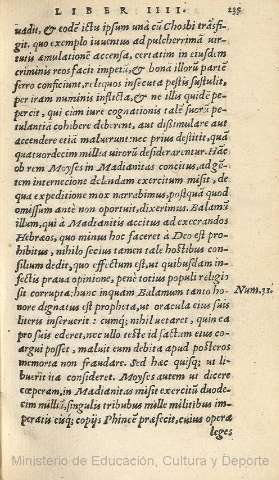 LIBER IIII. 235
uadit, & eodē ictu ipsum unà cū Chosbi trāsfi-
git, quo exemplo iuuenius ad pulcherrimā uir-
tutis æmulationem accensa, certatim in eiusdem
criminis reos facit impetū, & bona illorū parte
ferro conficiunt, reliquos insecuta pestis sustulit,
per iram numinis inflicta, & ne illis quidē pe-
percit, qui cùm iure cognationis tale sucrū pe-
tulantiā cohibere deberent, aut dissimulare aut
accendere etiā maluerunt: nec prius destitit, quà
quatuordecim millia uirorū desiderarentur. Hāc
ob rem Moyses in Madianitas concitus, ad gē-
tem internecione delendam exercitum misit, de
qua expeditione mox narrabimus, postquā quod
omissum antè non oportuit, dixerimus. Balamū
illum, qui à Madianitis accitus ad execrandos
Hebræos, quo minus hoc faceret à Deo est pro-
hibitus, nihilo secius tamen tale hostibus con-
silium dedit, quo effectum est, ut quibusdam in-
fectis praua opinione, penè totius populi religio
sit corrupta: hunc inquam Balamum tanto ho-
nore dignatus est propheta, ut oracula eius suis
literis inseruerit: cumq; nihil uetaret, quin ea
pro suis ederet, nec ullo teste id factum eius co-
argui posset, maluit eum debita apud posteros
memoria non fraudare. Sed hæc quisq; ut li-
buerit ita consideret. Moyses autem ut dicere
cœperam, in Madianitas misit exercitū duode-
cim milliū, singulis tribubus mille milites im-
peratis eūq; copijs Phineē præfecit, cuius opera
leges
Num. 31.
Ministerio de Educación, Cultura y Deporte